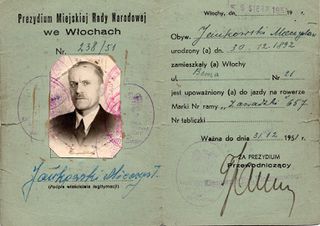 Prezydium Miejskiej Rady Narodowej
we Włochach
Nr. 238/51
Jankowski Mieczysł.
(Podpis właściciela legitymacji)
Włochy, 195 r.
Obyw. Jankowski Mieczysław
urodzony (a) dn. 30.12.1892
zamieszkały (a) Włochy
ul. Bema Nr 21
jest upoważniony (a) do jazdy na rowerze
Marki Nr ramy „Zawadzki 657
Nr tabliczki
Ważna do dn. 31.12 1951 r.
ZA PREZYDIUM
Przewodniczący